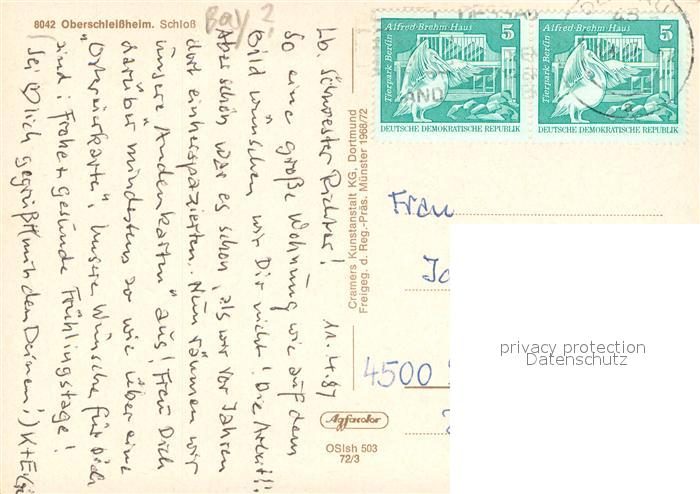 8042 Oberschleißheim. Schloß
Bay?
Lb. Schwester Richter! 11.4.87
So eine große Wohnung wie auf dem
Bild wünschen wir Dir nicht! Die Arbeit!!
Aber schön war es schon, als wir vor Jahren
dort einherspazierten. Nun räumen wir
unsere "Andenkarten" aus! Freu Dich
darüber mindestens so wie über eine
"Osterierkarte". Unsere Wünsche für Dich
sind: Frohe + gesunde Frühlingstage!
(Sei ♡lich gegrüßt mit den Deinen!) K+E
Cramers Kunstanstalt KG, Dortmund
Freigeg. d. Reg.-Präs. Münster 1968/72
Agfacolor
OSlsh 503
72/3
Alfred-Brehm-Haus 5
Tierpark Berlin
DEUTSCHE DEMOKRATISCHE REPUBLIK
Alfred-Brehm-Haus 5
Tierpark Berlin
DEUTSCHE DEMOKRATISCHE REPUBLIK
45
Frau
4500
privacy protection
Datenschutz